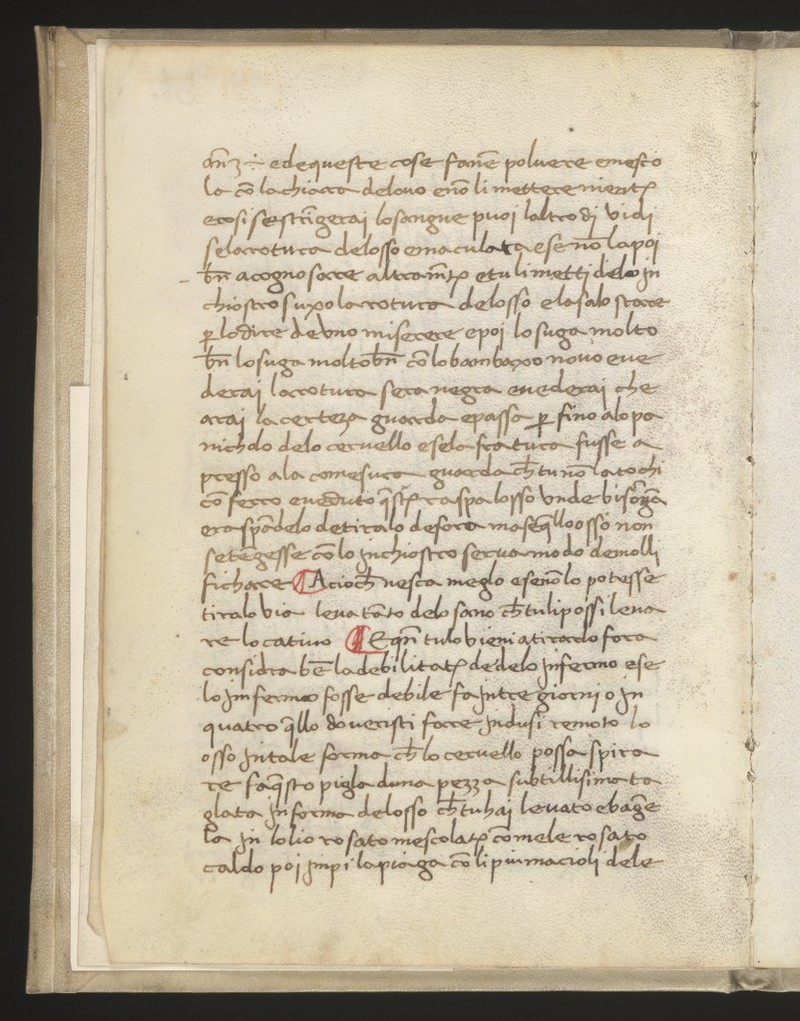 an̄ ʒ ÷ e de queste cose fane̅ polvere e mesco
la co̅ la chiara delovo e no̅ li mettere nient
e cosi se stri̅gerai lo sangue puoi laltro dj vidi
se la rotura delosso e maculata e se no̅ la poi
bn̅ acognosare altram̅t e tu li metti delo in
chiostro supo la rotura delosso e lasalo stare
ꝑ lo dire de uno miserere e poi lo suga molto
bn̅ lo suga molto bn̅ co̅ lo bambaxo novo e ve
derai la rotura sera negra e vederai che
arai la certeza guarda e passa ꝑ fino alo pa
nichulo delo cervello e se la fratura fusse a
presso ala comesura guarda ch̅ tu no̅ la tochi
co̅ ferro e veduto q̅st raspa losso unde bisog̅a
e raspa̅delo de tiralo defora ma se q̅llo osso non
se te̅gesse co̅ lo inchiostro serva modo demolli
fichare ¶ Acioch̅ nesca meglo e se no̅ lo potesse
tiralo via leva ta̅to delo sano ch̅ tu li possi leva
re lo cativo ¶ E qn̅ tu lo vieni a tirarlo fora
considra be̅ la debilitat de delo infermo e se
lo imfermo fosse debile fa intre giorni o in
quatro q̅llo doveristi fare indusi remoto lo
osso in tale forma ch̅ lo cervello possa spira
re fa q̅sto pigla duna pezza subtillisima ta
glata in forma delosso ch̅ tu hai levato e bag̅e
la in lolio rosato mescolat co̅ mele rosato
caldo poi impi la piaga co̅ li piumacioli dele